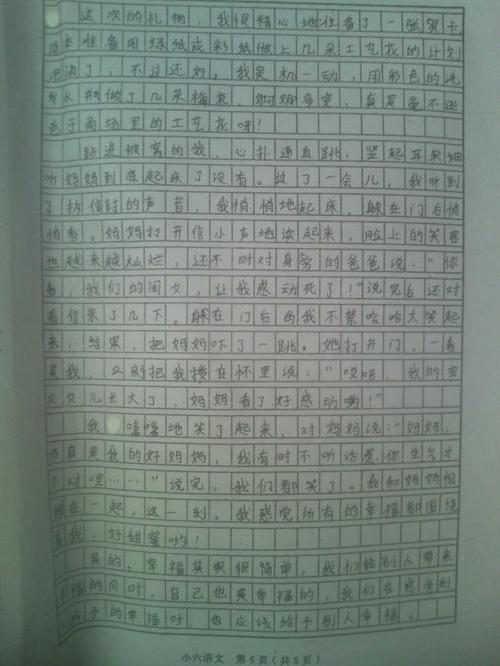 这次的礼物，我很精心地准备了一张贺卡，
原本准备用绿纸或彩纸做上几朵工艺花的计划
泡汤了，不过还好，我灵机一动，用彩色的泡
做了几朵梅花，真是毫不逊
色于商场里的工艺花呀！
钻进被窝的我，心扑通直跳，竖起耳朵细
听妈妈到底起床了没有。过了一会儿，我听到
了拆信封的声音，我悄悄地起床，躲在门后悄
悄看。妈妈打开信小声地读起来，脸上的笑容
也越来越灿烂，还不时对身旁的爸爸说：“你
看，我们的闺女，让我感动死了！”说完后还对
着信亲了几下。躲在门后的我不禁哈哈大笑起
来，结果，把妈妈吓了一跳。她打开门，一看
是我，立刻把我搂在怀里说：“哎唔，我的
女儿长大了，妈妈看了好感动哟！”
我嘻嘻地笑了起来，对妈妈说：“妈妈，
你真是我的好妈妈，我有时不听话惹你生气才
不对哩……”说完，我们都笑了。我和妈妈相
拥在一起，这一刻。我感觉所有的幸福都围绕
着我，好甜蜜哟！
是的。幸福其实很简单，我们给别人带来
幸福的同时，自己也是幸福的，我们在感受别
人给予的幸福时，也应该给予别人幸福。
小六语文　第6页（共6页）